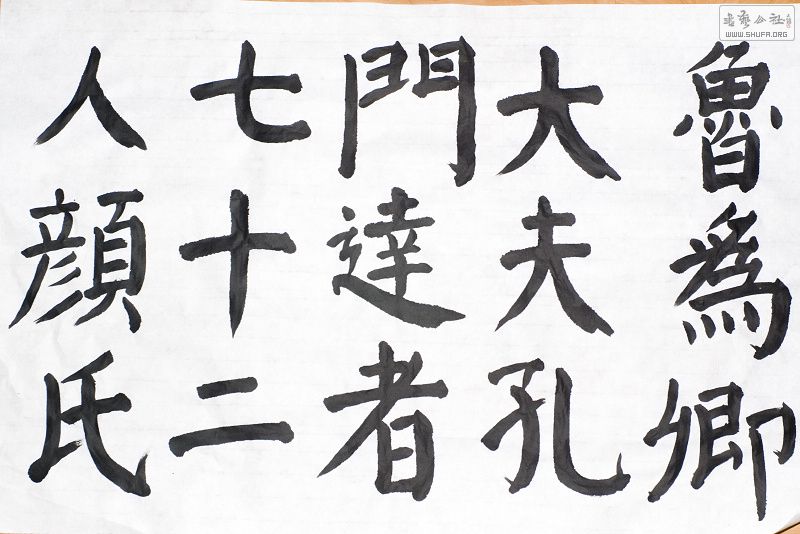 魯為卿
大夫孔
門達者
七十二
人顔氏
书艺公社
WWW.SHUFA.ORG